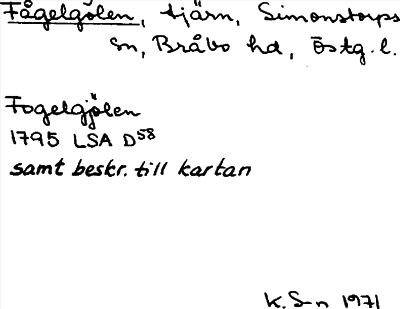 Fågelgölen, tjärn, Simonstorps
sn, Bråbo hd, Östg. l.
Fogelgjölen
1795 LSA D58
samt beskr. till kartan
K. S-n 1971